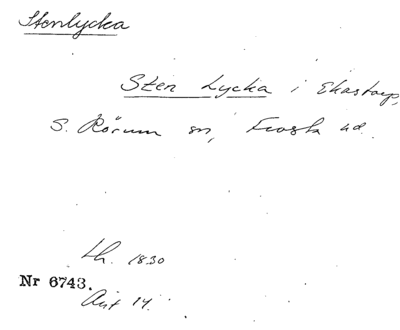 Stenlycka
Sten Lycka i Ekastorp,
S. Rörum sn, Frosta hd.
Lh. 1830
Nr 6743.
Akt 14.